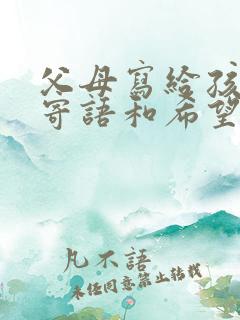 父母寫給孩
寄語和希望
凡不語
未經同意禁止轉載